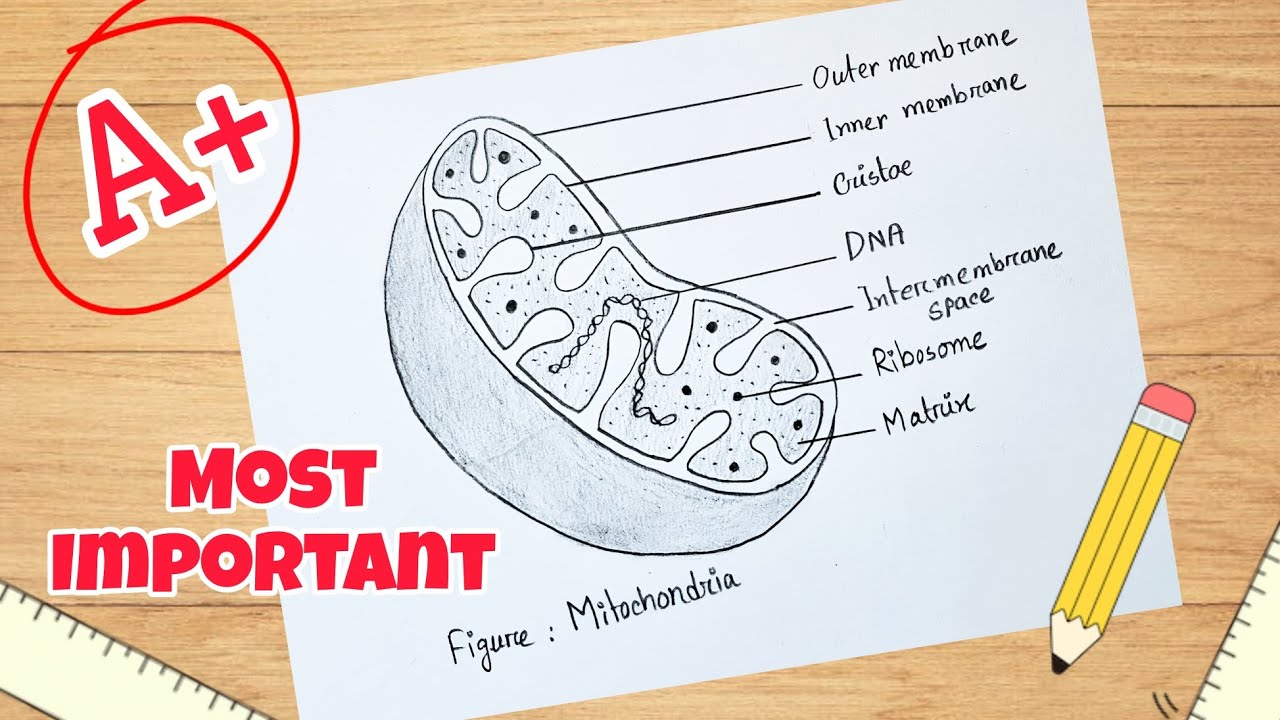 A+
Outer membrane
Inner membrane
Cristae
DNA
Intermembrane
space
Ribosome
Matrix
MOST
IMPORTANT
Figure : Mitochondria